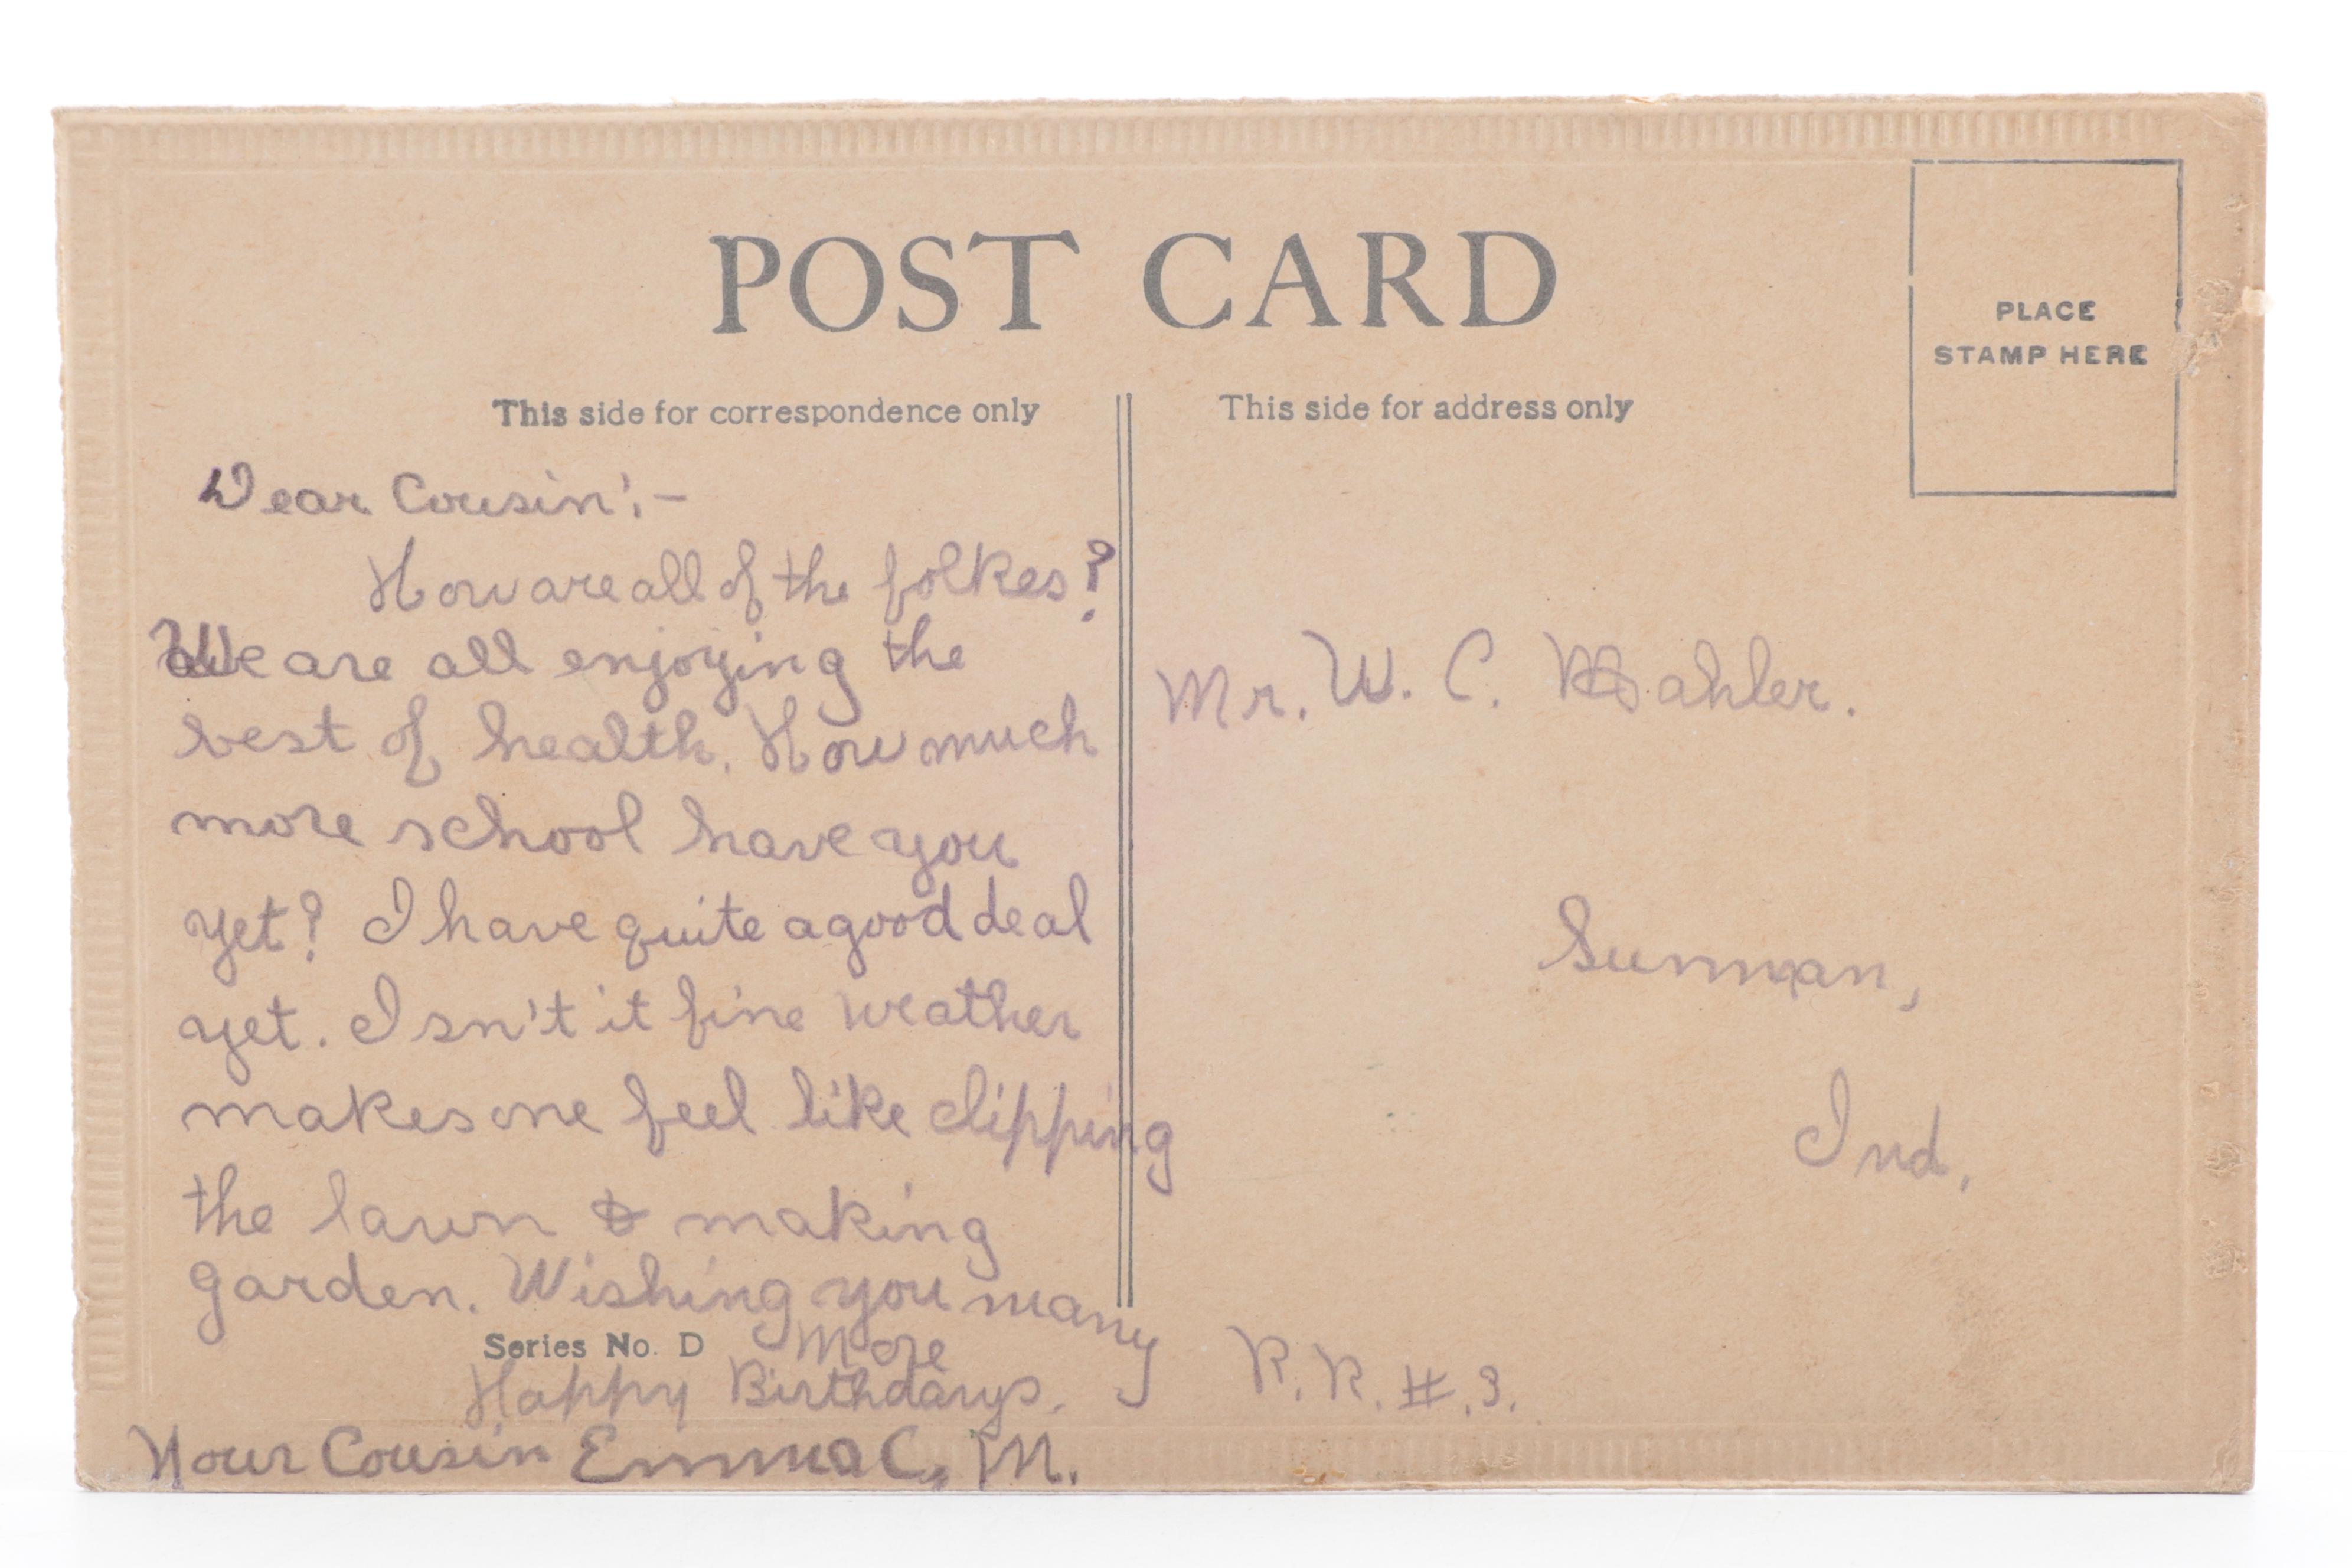 POST CARD
PLACE
STAMP HERE
This side for correspondence only
This side for address only
Dear Cousin:-
How are all of the folkes?
We are all enjoying the
best of health. How much
more school have you
yet? I have quite a good deal
yet. Isn't it fine weather
makes one feel like clipping
the lawn & making
garden. Wishing you many
More
Happy Birthdays.
Your Cousin Emma C. M.
Series No. D
Mr. W. C. Mahler.
Sunman,
Ind.
R.R.#.3.